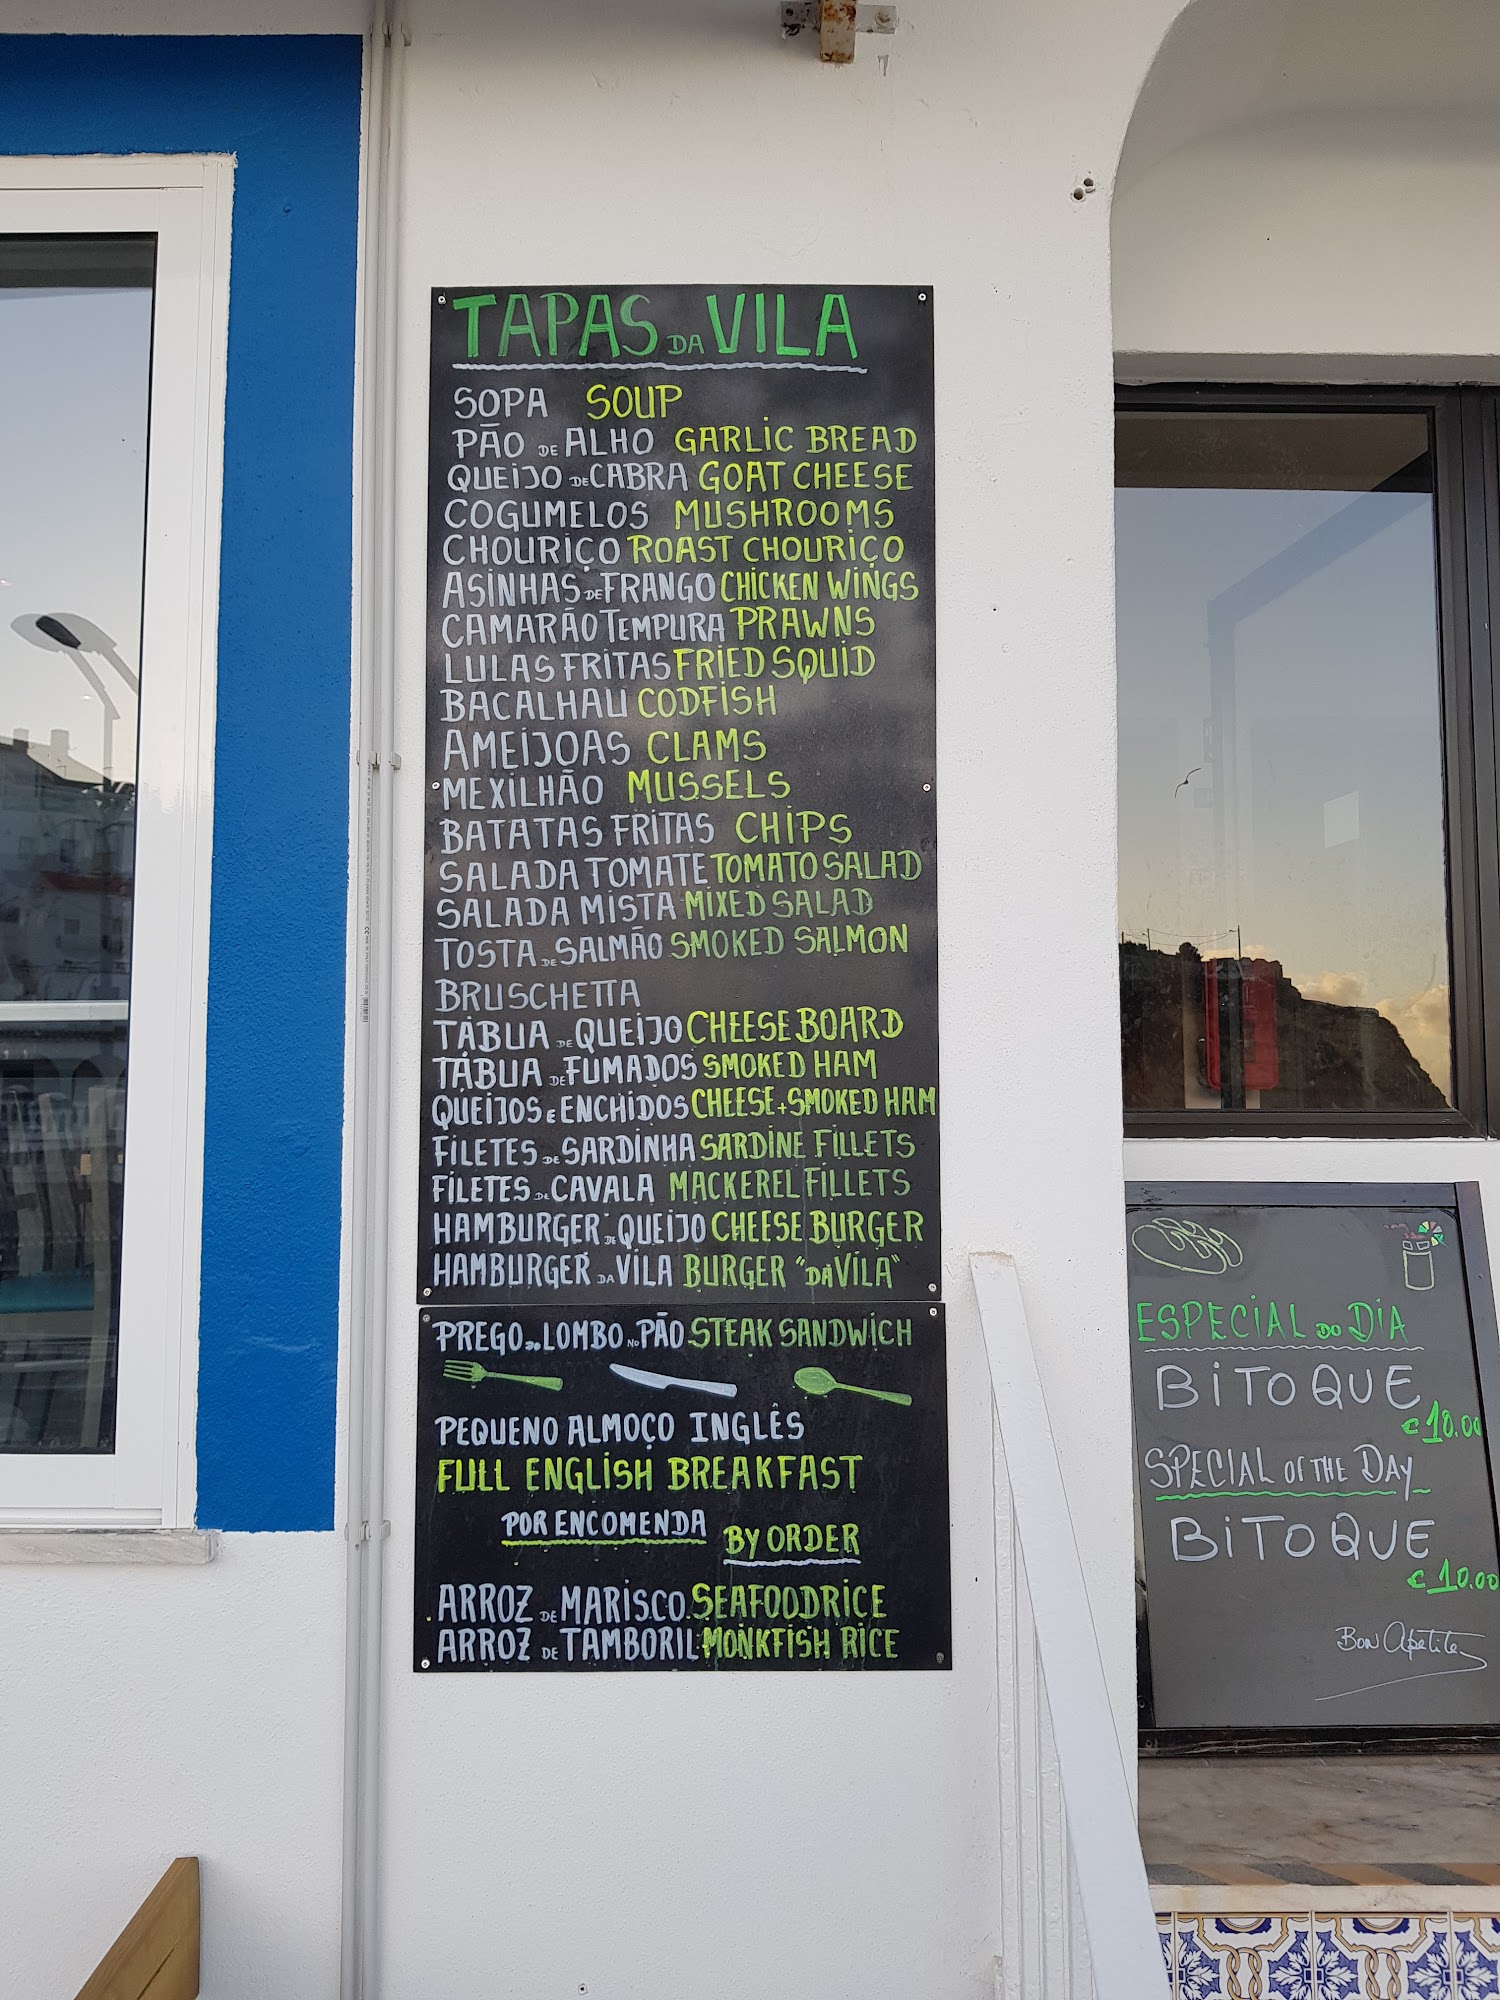 TAPAS DA VILA
SOPA SOUP
PÃO DE ALHO GARLIC BREAD
QUEIJO DE CABRA GOAT CHEESE
COGUMELOS MUSHROOMS
CHOURIÇO ROAST CHOURIÇO
ASINHAS DE FRANGO CHICKEN WINGS
CAMARÃO TEMPURA PRAWNS
LULAS FRITAS FRIED SQUID
BACALHAU CODFISH
AMEIJOAS CLAMS
MEXILHÃO MUSSELS
BATATAS FRITAS CHIPS
SALADA TOMATE TOMATO SALAD
SALADA MISTA MIXED SALAD
TOSTA DE SALMÃO SMOKED SALMON
BRUSCHETTA
TÁBUA DE QUEIJO CHEESE BOARD
TÁBUA DE FUMADOS SMOKED HAM
QUEIJOS E ENCHIDOS CHEESE + SMOKED HAM
FILETES DE SARDINHA SARDINE FILLETS
FILETES DE CAVALA MACKEREL FILLETS
HAMBURGER DE QUEIJO CHEESE BURGER
HAMBURGER DA VILA BURGER "DA VILA"
PREGO DO LOMBO NO PÃO STEAK SANDWICH
PEQUENO ALMOÇO INGLÊS
FULL ENGLISH BREAKFAST
POR ENCOMENDA BY ORDER
ARROZ DE MARISCO SEAFOOD RICE
ARROZ DE TAMBORIL MONKFISH RICE
ESPECIAL DO DIA
BITOQUE
€ 10.00
SPECIAL OF THE DAY
BITOQUE
€ 10.00
BON Apetite